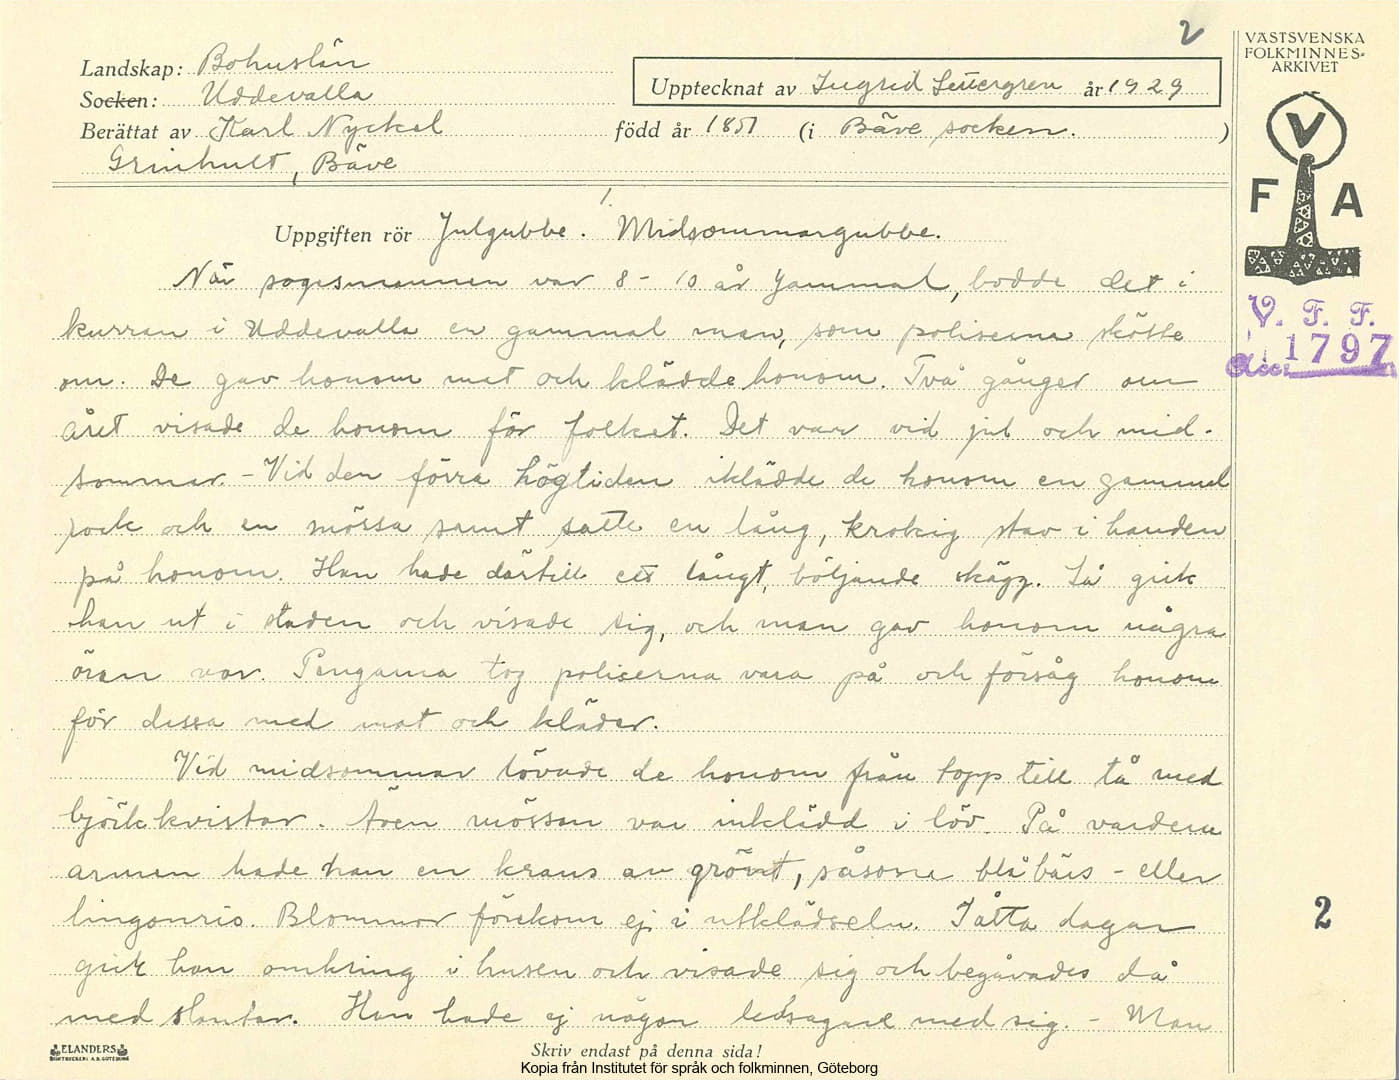 2
Landskap: Bohuslän
Socken: Uddevalla
Upptecknat av Ingrid år 1929
Berättat av Karl Nyckel född år 1851 (i Bäve socken. )
Grinhult, Bäve
1.
Uppgiften rör Julgubbe. Midsommargubbe.
När sagesmannen var 8-10 år gammal, bodde det i
kurran i Uddevalla en gammal man, som poliserna skötte
om. De gav honom mat och klädde honom. Två gånger om
året visade de honom för folket. Det var vid jul och mid-
sommar. - Vid den förra högtiden iklädde de honom en gammal
rock och en mössa samt satte en lång, krokig stav i handen
på honom. Han hade därtill ett långt, böljande skägg. Så gick
han ut i staden och visade sig, och man gav honom några
ören var. Pengarna tog poliserna vara på och försåg honom
för dessa med mat och kläder.
Vid midsommar lövade de honom från topp till tå med
björkkvistar. Även mössan var inklädd i löv. På vardera
armen hade han en krans av grönt, såsom blåbärs- eller
lingonris. Blommor förekom ej i utklädseln. I åtta dagar
gick han omkring i husen och visade sig och begåvades då
med slantar. Han hade ej någon ledsagare med sig. - Man
Skriv endast på denna sida!
ELANDERS
BOKTRYCKERI A.B. GÖTEBORG
VÄSTSVENSKA
FOLKMINNES-
ARKIVET
V
F A
V. F. F.
Acc. 1797
2
Kopia från Institutet för språk och folkminnen, Göteborg